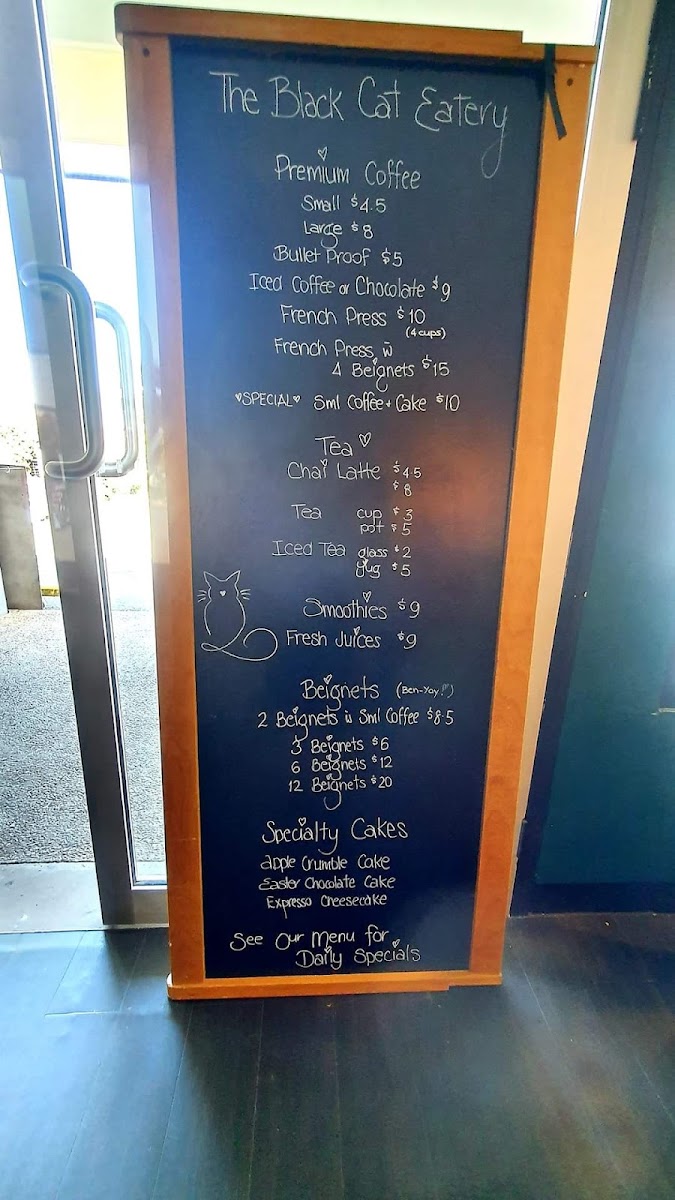 The Black Cat Eatery
Premium Coffee
Small $4.5
Large $8
Bullet Proof $5
Iced Coffee or Chocolate $9
French Press $10
(4 cups)
French Press w
4 Beignets $15
♥SPECIAL♥ Sml Coffee + Cake $10
Tea ♡
Chai Latte $4.5
$8
Tea cup $3
pot $5
Iced Tea glass $2
Jug $5
Smoothies $9
Fresh Juices $9
Beignets (Ben-Yay!♡)
2 Beignets w Sml Coffee $8.5
3 Beignets $6
6 Beignets $12
12 Beignets $20
Specialty Cakes
apple Crumble Cake
Easter Chocolate Cake
Expresso Cheesecake
See Our Menu for
Daily Specials